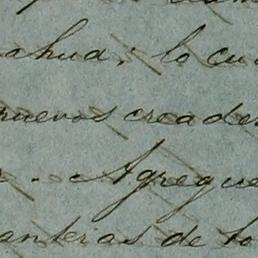 ahua; lo cu
nuevos creade
Agregue
anteras de to